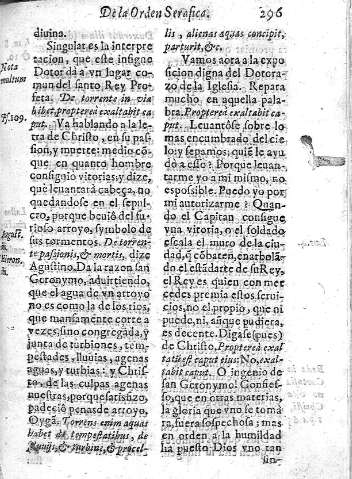 De la Orden Serafica.
296
diuina.
Singular es la interpre
tacion, que este insigne
Dotor dà a vn lugar co-
mun del santo Rey Pro-
feta. De torrente in via
bibet propterea exaltabit ca
put. Va hablando a la le-
tra de Christo, en su pas-
sion, y muerte: medio cõ
que en quanto hombre
consiguio vitorias; y dize,
que leuantarà cabeça, no
quedandose en el sepul-
cro, porque beuiò del fu-
rioso arroyo, symbolo de
sus tormentos. De torren-
te passionis, & mortis, dize
Agustino. Da la razon san
Geronymo, aduirtiendo,
que el agua de vn arroyo
no es como la de los rios,
que mansamente corre a
vezes, sino congregada, y
junta de turbiones, tem-
pestades, lluuias, agenas
aguas, y turbias: y Chris-
to, de las culpas agenas
nuestras, porque satisfizo,
padeciò penas de arroyo,
Oygã. Torrens enim aquas
habet de tempestatibus, de
pluuijs, & turbine, & procel-
Nota
multum
Ps. 109.
August.
lis, alienas aquas concipit,
parturit, &c.
Vamos aora a la expo
sicion digna del Dotora-
zo de la Iglesia. Repara
mucho, en aquella pala-
bra. Propterea exaltabit ca
put. Leuantòse sobre lo
mas encumbrado del cie-
lo; y sepamos; quiẽ le ayu
dò a esso? Porque leuan-
tarme yo a mi mismo, no
es possible. Puedo yo por
mi autorizarme? Quan-
do el Capitan consigue
vna vitoria, o el soldado
escala el muro de la ciu-
dad, q̃ cõbaten, enarbolã-
do el estãdarte de su Rey,
el Rey es quien con mer
cedes premia estos serui-
cios, no el propio, que ni
puede, ni, aũque pudiera,
es decente. Digase (pues)
de Christo. Propterea exal-
tatũ est caput eius: No, exal-
tabit caput. O ingenio de
san Geronymo! Confies-
so, que en otras materias,
la gloria que vno se toma
ra, fuera sospechosa; mas
en orden a la humildad
ha puesto Dios vno tan
sin-